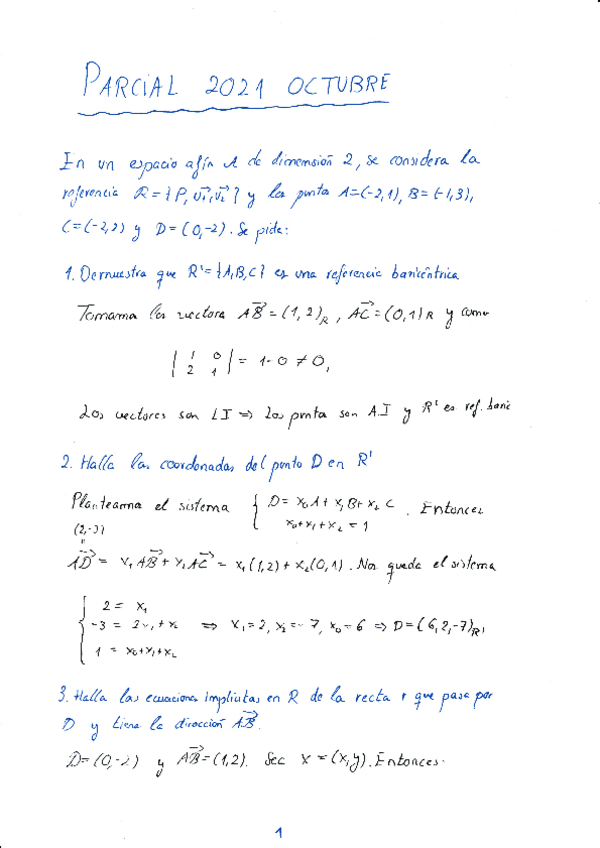 PARCIAL 2021 OCTUBRE
En un espacio afín A de dimensión 2, se considera la
referencia R = {P, v₁, v₂} y los puntos A=(-2,1), B=(-1,3),
C=(-2,2) y D=(0,-2). Se pide:
1. Demuestra que R'={A,B,C} es una referencia baricéntrica
Tomamos los vectores AB⃗ = (1,2)_R, AC⃗ = (0,1)_R y como
| 1 0 |
| 2 1 | = 1-0 ≠ 0,
Los vectores son LI ⇒ Los puntos son A.I y R' es ref. baric
2. Halla las coordenadas del punto D en R'
Planteamos el sistema { D = x₀A + x₁B + x₂C . Entonces
x₀+x₁+x₂ = 1
(2,-3)
"
AD⃗ = x₁AB⃗ + x₂AC⃗ = x₁(1,2) + x₂(0,1). Nos queda el sistema
{ 2 = x₁
-3 = 2x₁ + x₂ ⇒ x₁=2, x₂=-7, x₀=6 ⇒ D=(6,2,-7)_R'
1 = x₀+x₁+x₂
3. Halla las ecuaciones implícitas en R de la recta r que pasa por
D y tiene la dirección AB⃗.
D=(0,-2) y AB⃗=(1,2). Sea X=(x,y). Entonces.
1